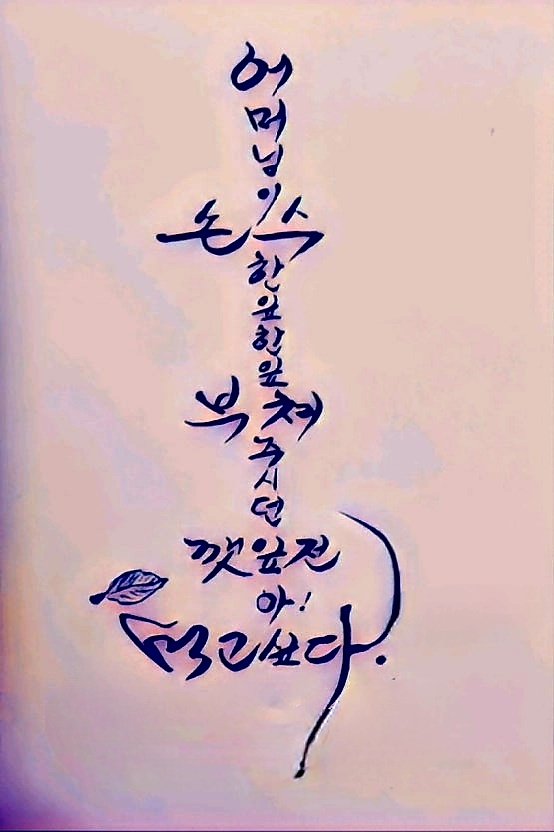 어
머
님
이
손스
한
잎
한
잎
부쳐
주
시
던
깻잎전
아!
먹고싶다.